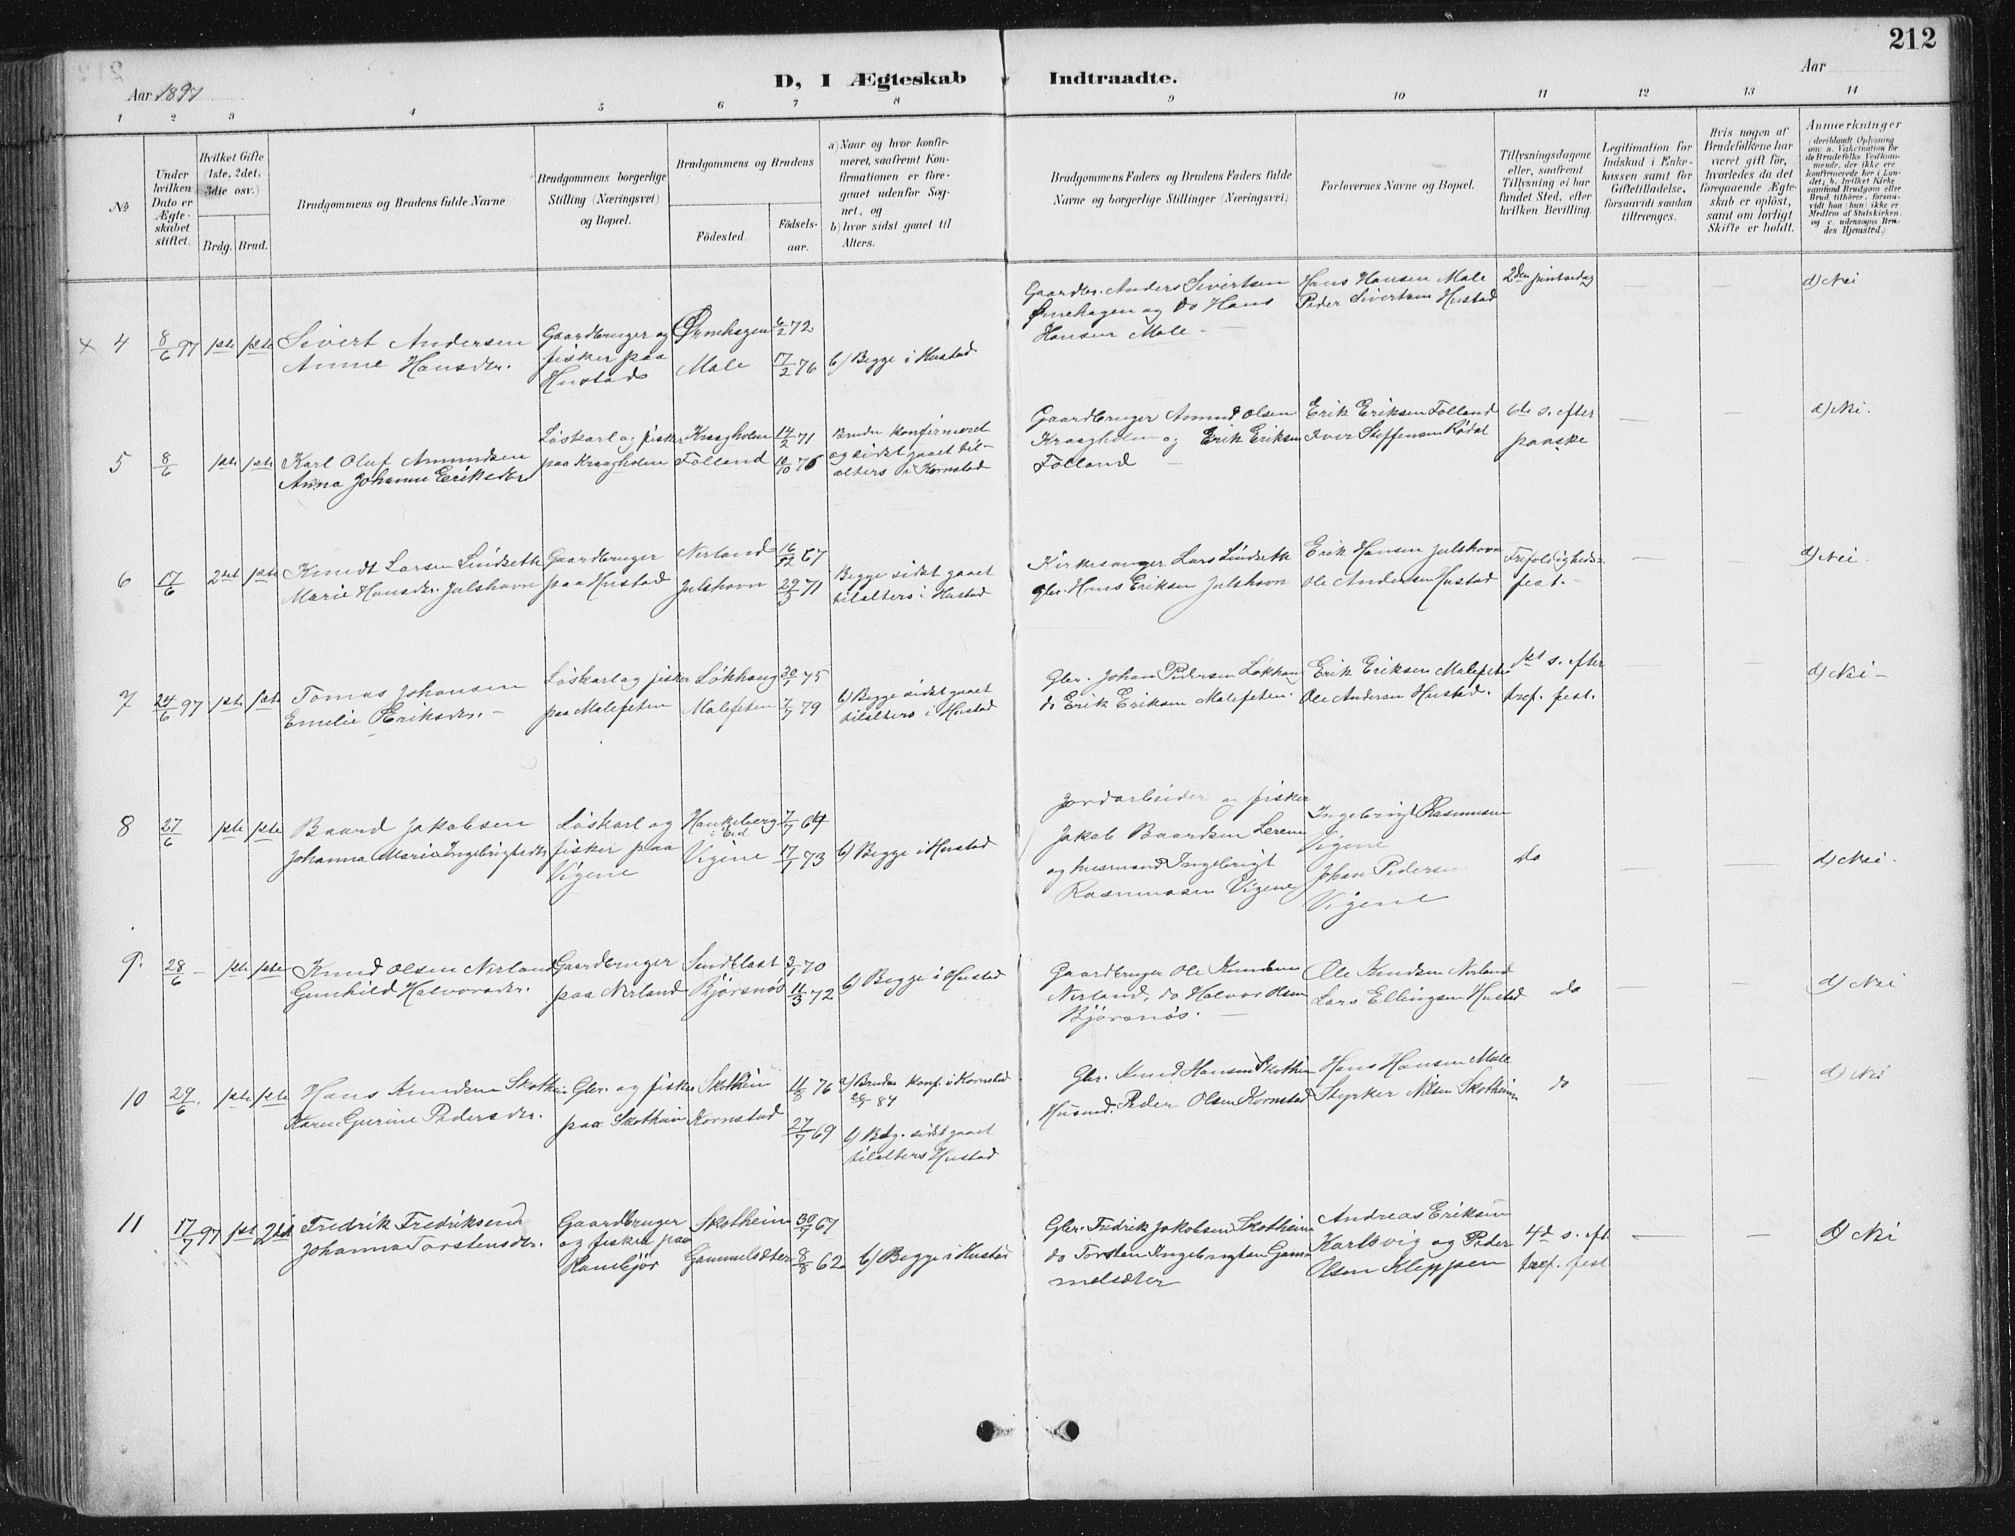 212
D, I Ægteskab Indtraadte.
Aar 1897
Aar
1 2 3 4 5 6 7 8 9 10 11 12 13 14
No
Under hvilken Dato er Ægteskabet stiftet.
Hvilket Gifte (1ste, 2det, 3die osv.)
Brdg. Brud.
Brudgommens og Brudens fulde Navne
Brudgommens borgerlige Stilling (Næringsvei) og Bopæl.
Brudgommens og Brudens
Fødested. Fødselsaar.
a) Naar og hvor konfirmeret, saafremt Konfirmationen er foregaaet udenfor Sognet, og
b) hvor sidst gaaet til Alters.
Brudgommens Faders og Brudens Faders fulde Navne og borgerlige Stillinger (Næringsvei)
Forlovernes Navne og Bopæl.
Tillysningsdagene eller, saafremt Tillysning ei har fundet Sted, efter hvilken Bevilling.
Legitimation for Indskud i Enkekassen samt for Giftetilladelse, forsaavidt saadan tiltrænges.
Hvis nogen af Brudefolkene har været gift før, hvorledes da det foregaaende Ægteskab er opløst, samt om lovligt Skifte er holdt.
Anmærkninger
(deriblandt Oplysning om: a. Vakcination for de Brudefolks Vedkommende, der ikke ere konfirmerede her i Landet; b. hvilket Kirkesamfund Brudgom eller Brud tilhører, forsaavidt han (hun) ikke er Medlem af Statskirken, og c. udensogns Brudes Hjemsted.)
x 4 8/6 97 1ste 1ste Sivert Andersen
Anne Hansdtr.
Gaardbruger og
fisker paa
Hustad
Ørnehagen 6/2 72
Male 17/2 76
b) Begge i Hustad
Gaardbr. Anders Sivertsen
Ørnehagen og do Hans
Hansen Male -
Hans Hansen Male
Peder Sivertsen Hustad
2den pintsedag
d) Nei
5 8/6 1ste 1ste Karl Oluf Amundsen
Anna Johanne Eriksdtr
Løskarl og fisker
paa Kraagholm
Kraagholm 14/2 71
Folland 76
Bruden konfirmeret
og sidst gaaet til-
alters i Kornstad
Gaardbruger Amund Olsen
Kraagholm og Erik Eriksen
Folland -
Erik Eriksen Folland
Iver Steffensen Rødal
6te s. efter
paaske
d) Nei.
6 17/6 2det 1ste Knudt Larsen Lindseth
Marie Hansdtr. Julshavn
Gaardbruger
paa Hustad
Nerland 16/12 67
Julshavn 29/3 71
Begge sidst gaaet
tilalters i Hustad
Kirkesanger Lars Lindseth
Gbr. Hans Eriksen Julshavn
Erik Hansen Julshavn
Ole Andersen Hustad
Trefoldigheds-
fest.-
d) Nei.
7 24/6 97 1ste 1ste Tomas Johansen
Emelie Eriksdtr. -
Løskarl og fisker
paa Malefeten
Løkhaug 30/1 75
Malefeten 7/7 79
b) Begge sidst gaaet
tilalters i Hustad
Gbr. Johan Pedersen Løkhaug
do Erik Eriksen Malefeten.
Erik Eriksen Malefeten
Ole Andersen Hustad.
1st s. efter
tref. fest.
d) Nei -
8 27/6 1ste 1ste Baard Jakobsen
Johanna Marie Ingebrigtsdtr
Løskarl og
fisker paa
Vigene
Haukeberg 7/7 64
i Eid
Vigene 17/1 73
b) Begge i Hustad
Jordarbeider og fisker
Jakob Baardsen
og husmand Ingebrigt
Rasmussen Vigene
Ingebrigt Rasmussen
Vigene
Johan Pedersen
Vigene
do
d) Nei.
9. 28/6 - 1ste 1ste Knud Olsen Nerland
Gunhild Halvorsdtr.
Gaardbruger
paa Nerland
3/1 70
Bjørsnøs 11/3 72
b) Begge i Hustad
Gaardbruger Ole Knudsen
Nerland, do Halvor Olsen
Bjørsnøs. -
Ole Knudsen Nerland
Lars Ellingsen Hustad
do
d) Nei
10 29/6. 1ste 1ste Hans Knudsen Skothein
Karen Gjerine Pedersdtr.
Gbr. og fisker
paa Skothein
Skothein 11/8 76
Kornstad 27/7 69
a) Bruden konf. i Kornstad
84
b) Bdg. sidst gaaet
tilalters Hustad
Gbr. Knud Hansen Skothein
Husmd. Peder Olsen Kornstad
Hans Hansen Male
Styrker Nilsen Skothein
do
d) Nei
11 17/7 97 1st 2det Fredrik Fredriksen
Johanna Torstensdtr.
Gaardbruger
og fisker paa
Skothein 30/7 67
Gammelsæter 8/8 62
b) Begge i Hustad
Gbr. Fredrik Jakobsen Skothein
do Torsten Ingebrigtsen Gam-
melsæter
Andreas Eriksen
Karlsvig og Peder
Olsen Kleppsen
4d s. eft
tref. fest
d) Nei